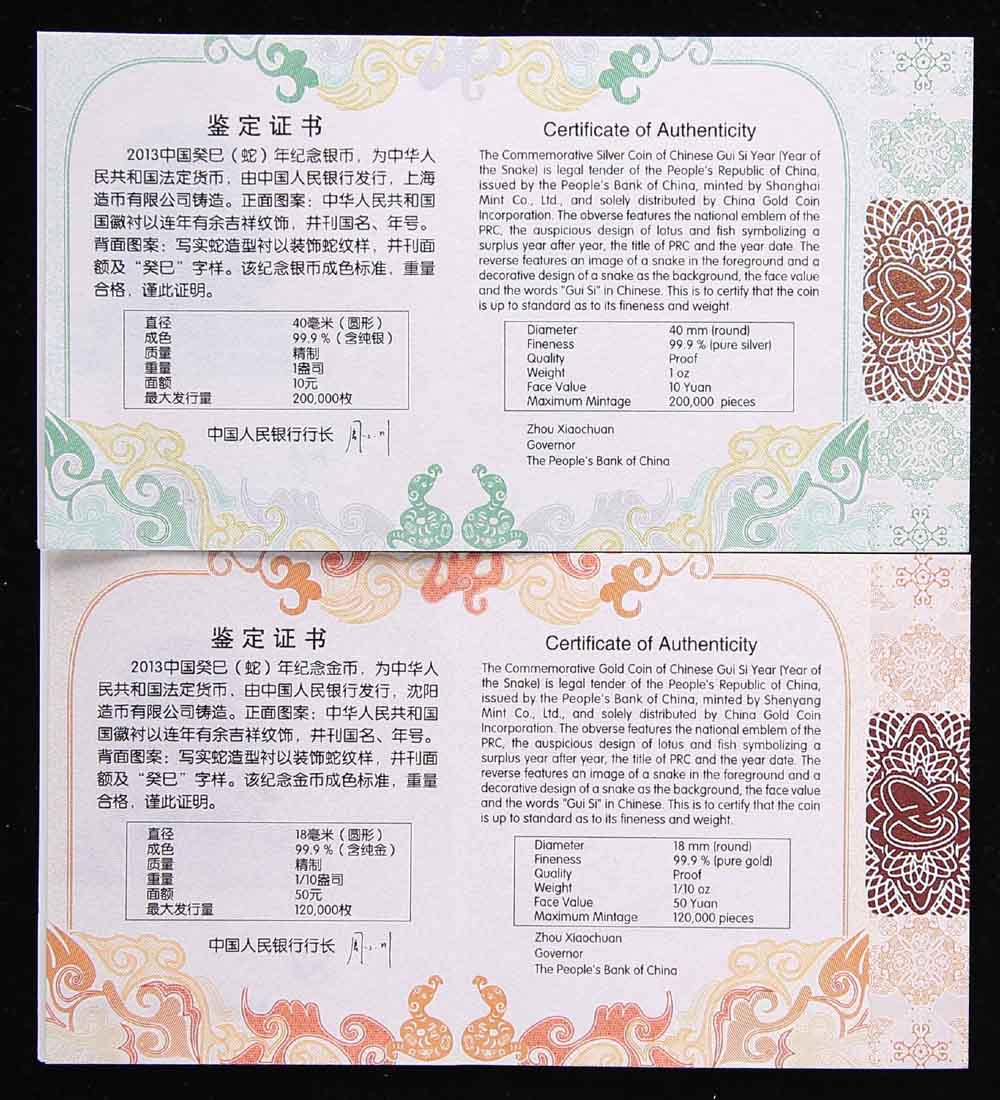 鉴定证书
2013中国癸巳（蛇）年纪念银币，为中华人
民共和国法定货币，由中国人民银行发行，上海
造币有限公司铸造。正面图案：中华人民共和国
国徽衬以连年有余吉祥纹饰，并刊国名、年号。
背面图案：写实蛇造型衬以装饰蛇纹样，并刊面
额及“癸巳”字样。该纪念银币成色标准，重量
合格，谨此证明。
直径 40毫米（圆形）
成色 99.9％（含纯银）
质量 精制
重量 1盎司
面额 10元
最大发行量 200,000枚
中国人民银行行长
Certificate of Authenticity
The Commemorative Silver Coin of Chinese Gui Si Year (Year of
the Snake) is legal tender of the People's Republic of China,
issued by the People's Bank of China, minted by Shanghai
Mint Co., Ltd., and solely distributed by China Gold Coin
Incorporation. The obverse features the national emblem of the
PRC, the auspicious design of lotus and fish symbolizing a
surplus year after year, the title of PRC and the year date. The
reverse features an image of a snake in the foreground and a
decorative design of a snake as the background, the face value
and the words "Gui Si" in Chinese. This is to certify that the coin
is up to standard as to its fineness and weight.
Diameter 40 mm (round)
Fineness 99.9 % (pure silver)
Quality Proof
Weight 1 oz
Face Value 10 Yuan
Maximum Mintage 200,000 pieces
Zhou Xiaochuan
Governor
The People's Bank of China
鉴定证书
2013中国癸巳（蛇）年纪念金币，为中华人
民共和国法定货币，由中国人民银行发行，沈阳
造币有限公司铸造。正面图案：中华人民共和国
国徽衬以连年有余吉祥纹饰，并刊国名、年号。
背面图案：写实蛇造型衬以装饰蛇纹样，并刊面
额及“癸巳”字样。该纪念金币成色标准，重量
合格，谨此证明。
直径 18毫米（圆形）
成色 99.9％（含纯金）
质量 精制
重量 1/10盎司
面额 50元
最大发行量 120,000枚
中国人民银行行长
Certificate of Authenticity
The Commemorative Gold Coin of Chinese Gui Si Year (Year of
the Snake) is legal tender of the People's Republic of China,
issued by the People's Bank of China, minted by Shenyang
Mint Co., Ltd., and solely distributed by China Gold Coin
Incorporation. The obverse features the national emblem of the
PRC, the auspicious design of lotus and fish symbolizing a
surplus year after year, the title of PRC and the year date. The
reverse features an image of a snake in the foreground and a
decorative design of a snake as the background, the face value
and the words "Gui Si" in Chinese. This is to certify that the coin
is up to standard as to its fineness and weight.
Diameter 18 mm (round)
Fineness 99.9 % (pure gold)
Quality Proof
Weight 1/10 oz
Face Value 50 Yuan
Maximum Mintage 120,000 pieces
Zhou Xiaochuan
Governor
The People's Bank of China